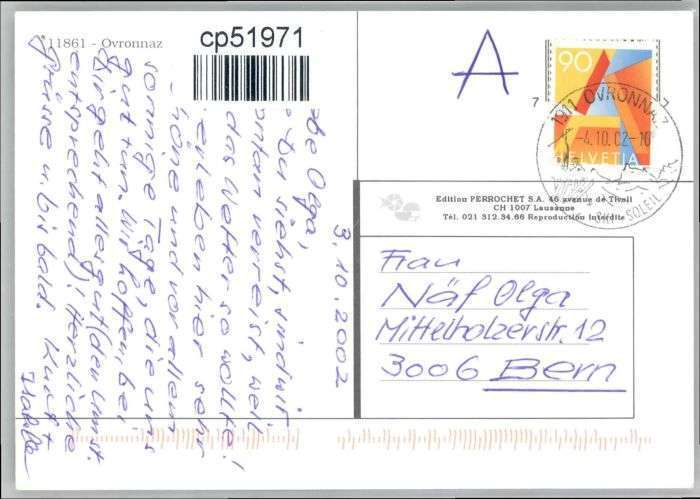 11861 - Ovronnaz
cp51971
3.10.2002
Olga,
du siehst, sind wir
verreist, weil
das Wetter so wollte!
erleben hier sehr
und vor allem
sonnige Tage, die uns
gut tun. Wir hoffen, bei
Dir geht alles gut (den Umst.
entsprechend)! Herzliche
Grüsse u. bis bald. Kurt
A
90
HELVETIA
7 7
1911 OVRONNAZ
-4.10.02-
SOLEIL
Edition PERROCHET S.A. 46 avenue de Tivoli
CH 1007 Lausanne
Tél. 021 312.34.66 Reproduction interdite
Frau
Näf Olga
Mittelholzerstr. 12
3006 Bern